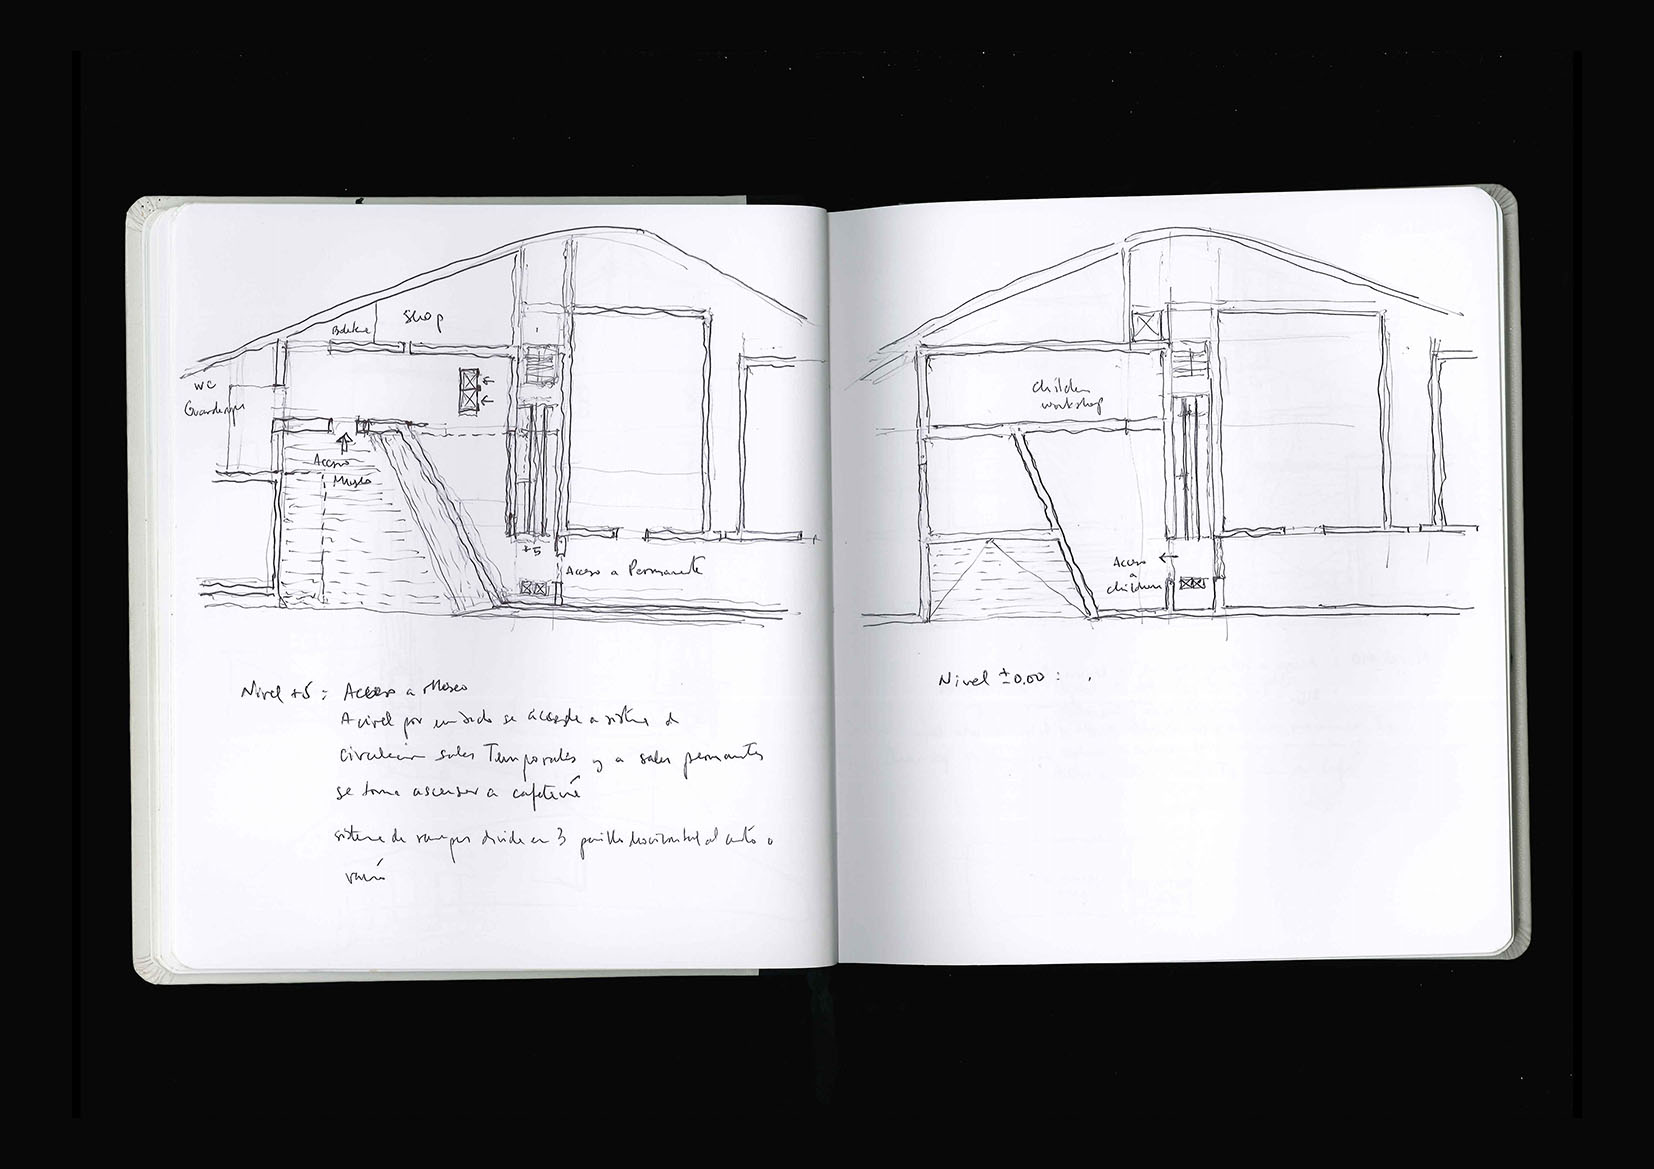 shop
WC
Acceso
Museo
+5
Acceso a Permanente
Nivel +5: Acceso a Museo
A nivel por se accede a sistema de
circulación salas Temporales y a salas permanentes
se toma ascensor a cafetería
sistema de rampas divide en 3
children
workshop
Acceso
a
children
Nivel ±0.00: